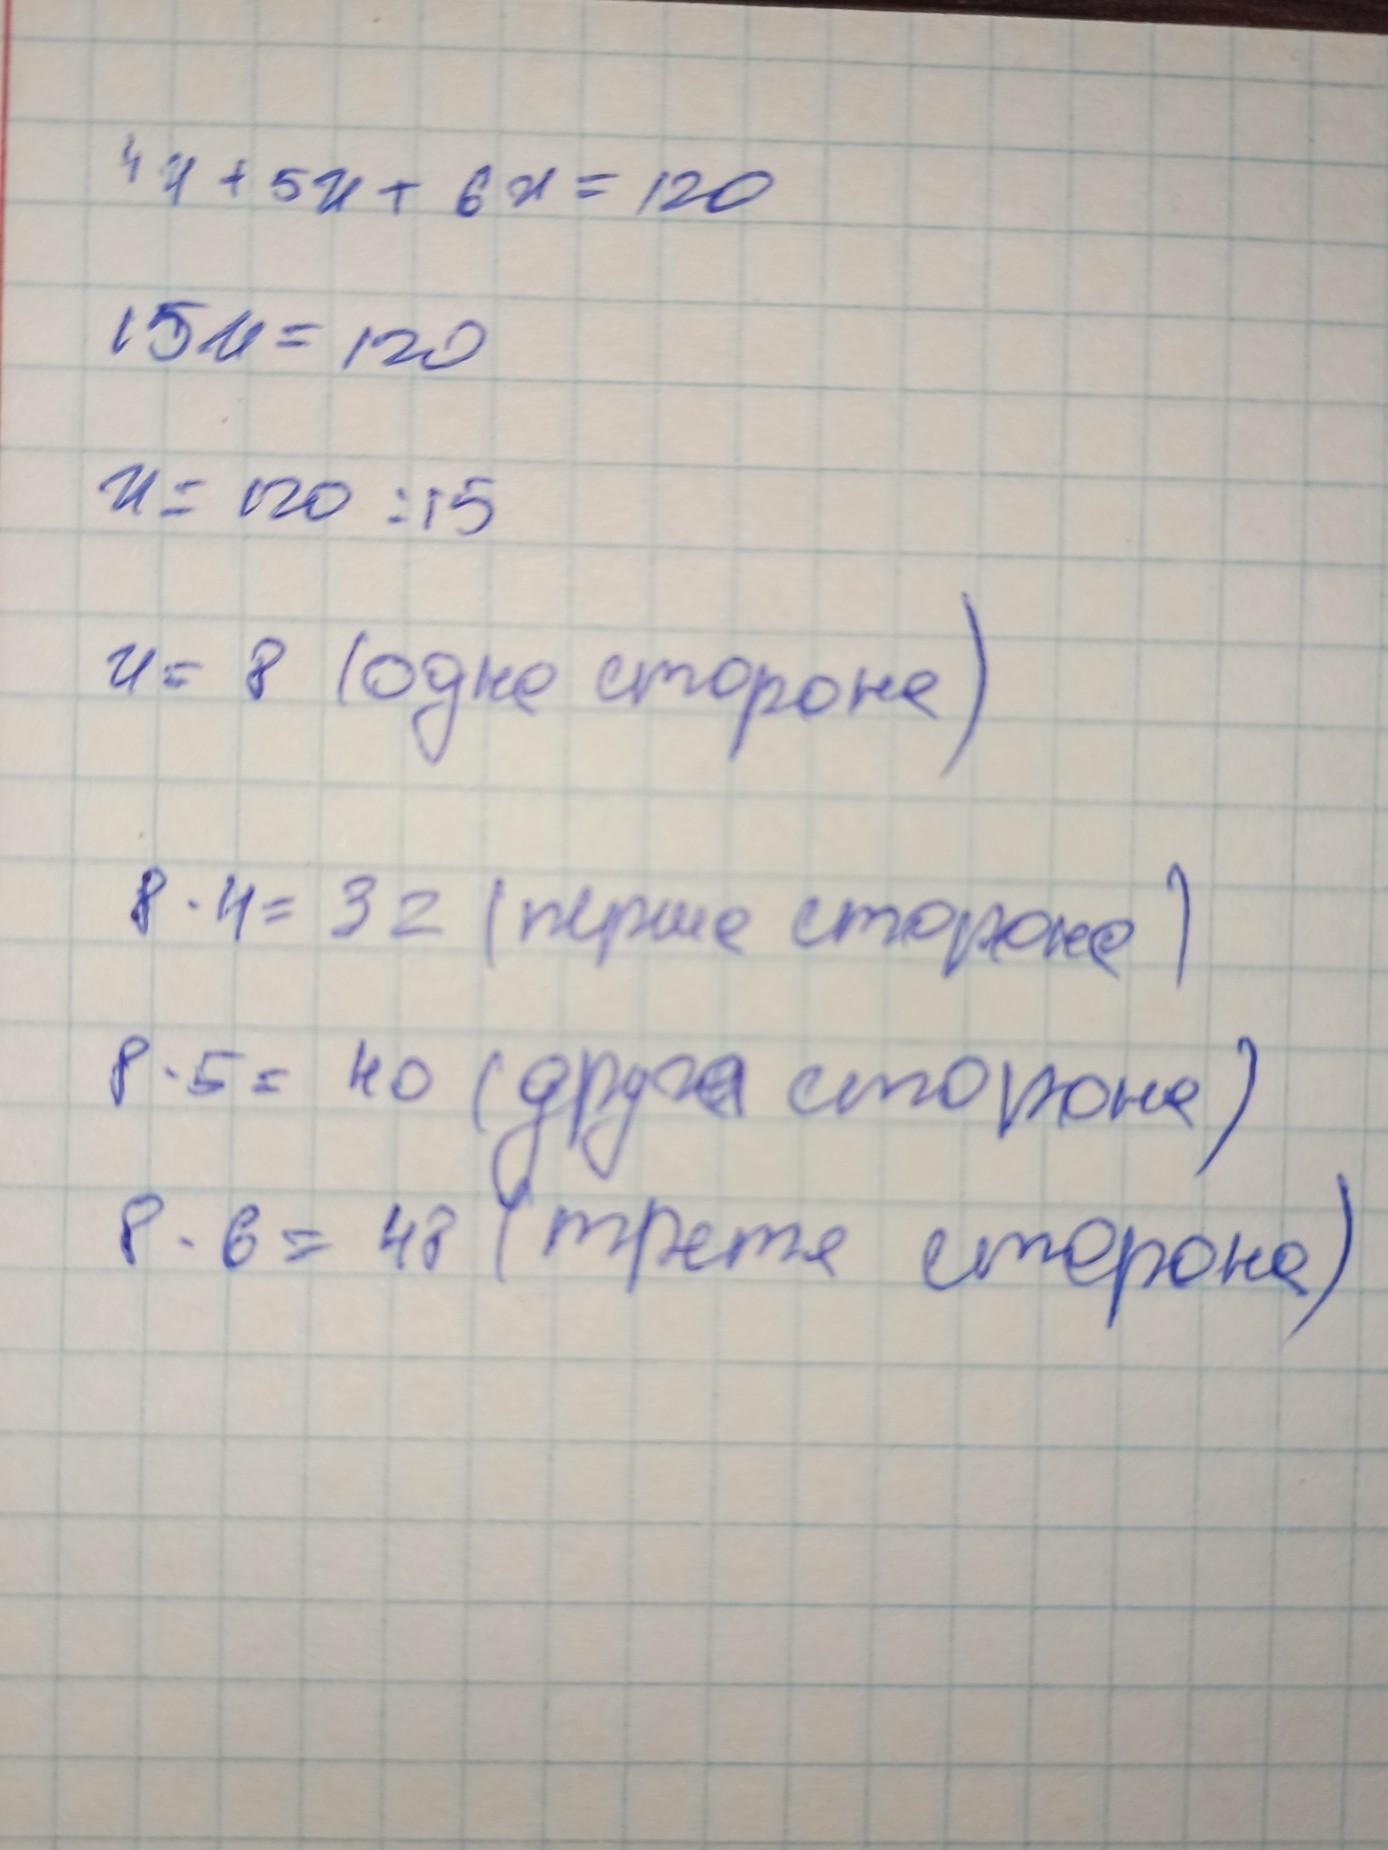 4x + 5x + 6x = 120
15x = 120
x = 120 : 15
x = 8 (одна сторона)
8 · 4 = 32 (перша сторона)
8 · 5 = 40 (друга сторона)
8 · 6 = 48 (третя сторона)